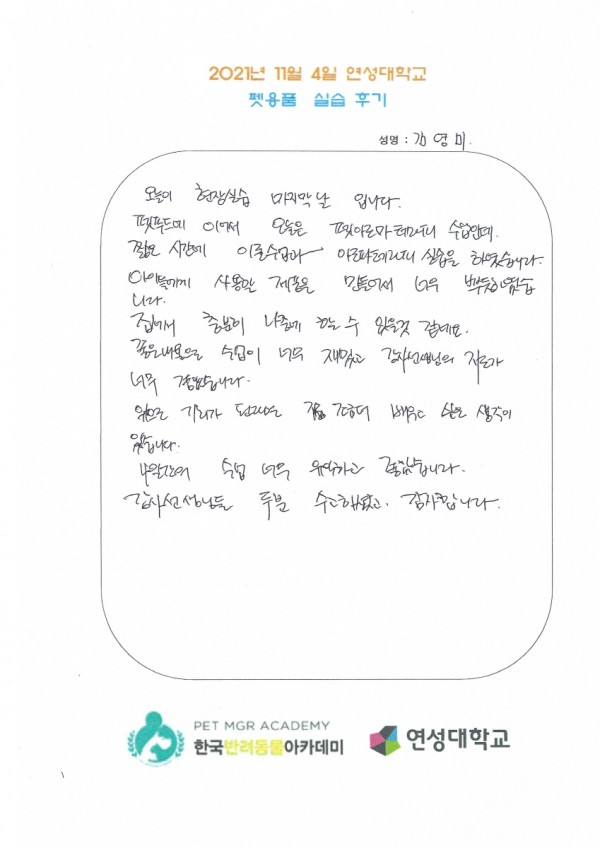 2021년 11월 4일 연성대학교
펫용품 실습 후기
성명 : 김영미.
오늘이 현장실습 마지막날 입니다.
펫푸드에 이어서 오늘은 펫아로마테라피 수업인데.
짧은 시간에 이론수업과 아로마테라피 실습을 하였습니다.
아이들에게 사용할 제품을 만들어서 너무 뿌듯하였습
니다.
집에서 충분히 나중에 할 수 있을것 같네요.
좋은내용으로 수업이 너무 재밌고 강사선생님의 지도가
너무 좋았습니다.
앞으로 기회가 된다면 좀더 배우고 싶은 생각이
있습니다.
4일간의 수업 너무 유익하고 즐거웠습니다.
강사선생님들 두분 수고하셨고. 감사합니다.
PET MGR ACADEMY
한국반려동물아카데미
연성대학교